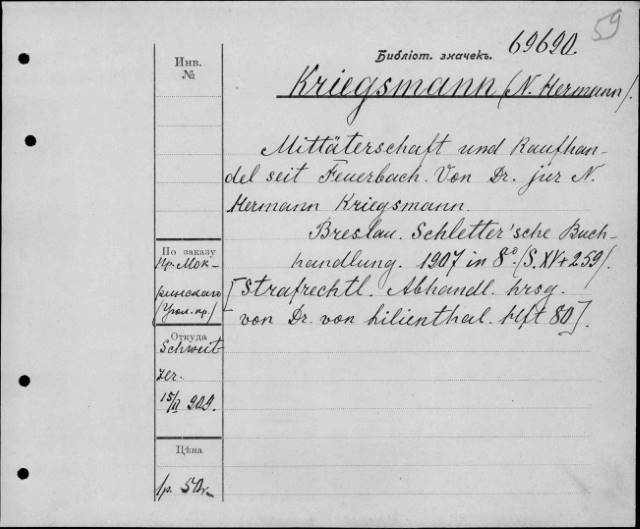 59
Инв.
№
Библіот. значекъ. 69620.
Kriegsmann (N. Hermann).
Mittäterschaft und Raufhan-
del seit Feuerbach. Von Dr. jur N.
Hermann Kriegsmann.
Breslau. Schletter'sche Buch-
handlung. 1907 in 8° (S. XV+259).
[Strafrechtl. Abhandl. hrsg.
von Dr. von Lilienthal. Hft 80].
По заказу
Пр. Мок-
ринскаго
(Угол. пр.)
Откуда
Schweit
zer.
15/II 909.
Цѣна
1р. 50к.